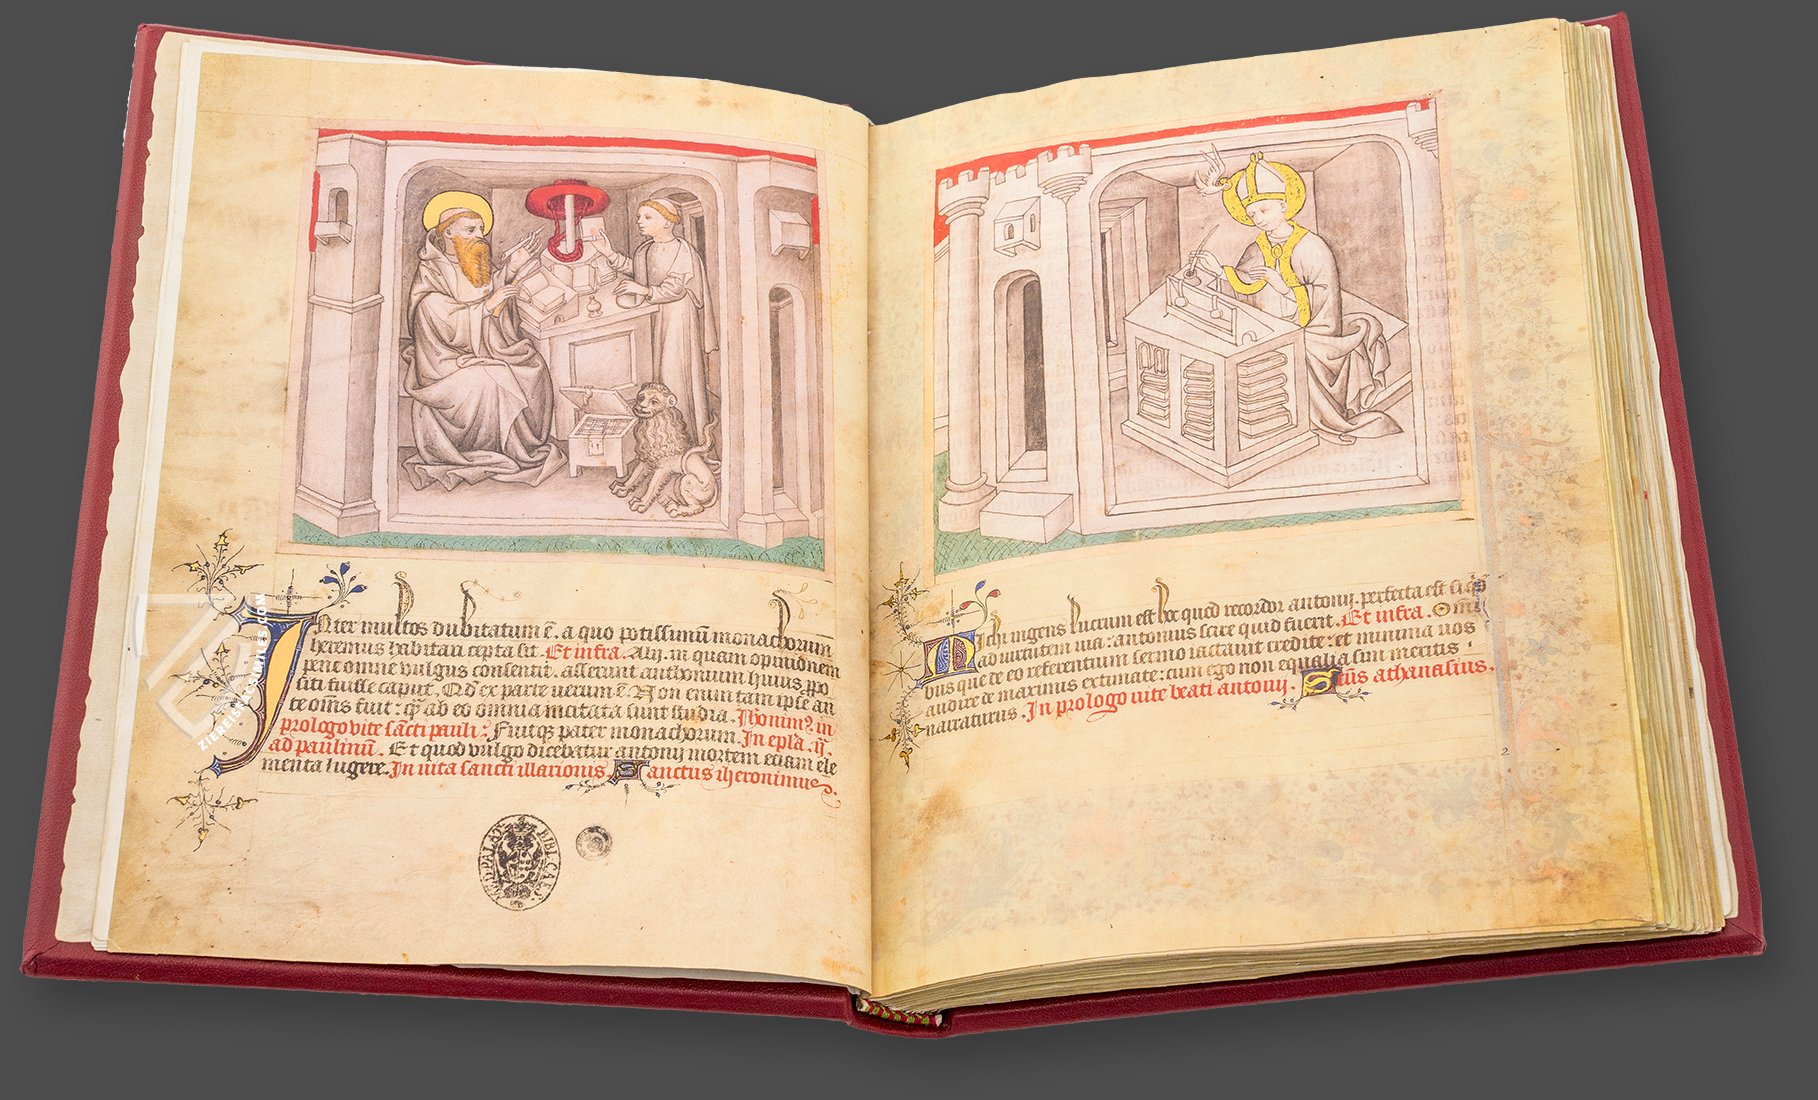 Inter multos dubitatum ē. a quo potissimū monachorum
heremus habitari cepta sit. Et infra. Alij. in quam opinionem
pene omne vulgus consentit. asserunt anthonium huius ꝓpo
siti fuisse caput. Qd' ex parte uerum ē. Non enim tam ipse an
te om̄s fuit: qͣ ab eo omnia incitata sunt studia. Jheronimꝰ in
prologo vite sancti pauli: Fuitqꝫ pater monachorum. In epl'a. ij.
ad paulinū. Et quod vulgo dicebatur antonij mortem etiam ele
menta lugere. In uita sancti illarionis Sanctus iheronimus.
PALAT BIBL CAES
ZIEREIS FAKSIMILE.COM
Michi ingens lucrum est hoc quod recordor antonij. perfecta est siqͥd
ad virtutem uia: antonius scire quid fuerit. Et infra. Omni
bus que de eo referentium sermo iactauit credite: et minima uos
audire de maximis extimate: cum ego non equalia sim meritis
narraturus. In prologo vite beati antonij. Sctūs athanasius.
2